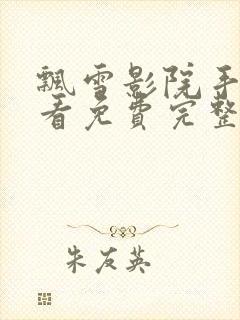 飘雪影院手
看免费完整
朱友英